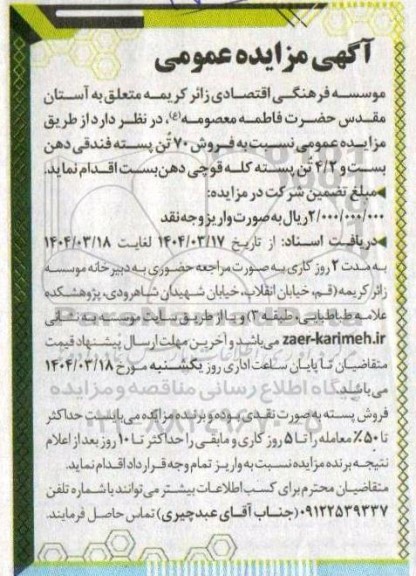 آگهی مزایده عمومی
موسسه فرهنگی اقتصادی زائر کریمه متعلق به آستان
مقدس حضرت فاطمه معصومه (ع)، در نظر دارد از طریق
مزایده عمومی نسبت به فروش ۷۰ تُن پسته فندقی دهن
بست و ۴/۲ تن پسته کله قوچی دهن‌بست اقدام نماید.
مبلغ تضمین شرکت در مزایده:
۲/۰۰۰/۰۰۰/۰۰۰ ریال به صورت واریز وجه نقد
دریافت اسناد: از تاریخ ۱۴۰۴/۰۳/۱۷ لغایت ۱۴۰۴/۰۳/۱۸
به مدت ۲ روز کاری به صورت مراجعه حضوری به دبیرخانه موسسه
زائر کریمه (قم، خیابان انقلاب، خیابان شهیدان شاهرودی، پژوهشکده
علامه طباطبایی، طبقه ۳) و یا از طریق سایت موسسه به نشانی
zaer-karimeh.ir می‌باشد و آخرین مهلت ارسال پیشنهاد قیمت
متقاضیان تا پایان ساعت اداری روز یکشنبه مورخ ۱۴۰۴/۰۳/۱۸
می‌باشد.
فروش پسته به صورت نقدی بوده و برنده مزایده می‌بایست حداکثر
تا ۵۰٪ معامله را تا ۵ روز کاری و مابقی را حداکثر تا ۱۰ روز بعد از اعلام
نتیجه برنده مزایده نسبت به واریز تمام وجه قرارداد اقدام نماید.
متقاضیان محترم برای کسب اطلاعات بیشتر می‌توانند با شماره تلفن
۰۹۱۲۲۵۳۹۳۳۷ (جناب آقای عبدچیری) تماس حاصل فرمایند.
ParsNamadData
پایگاه اطلاع رسانی مناقصه و مزایده